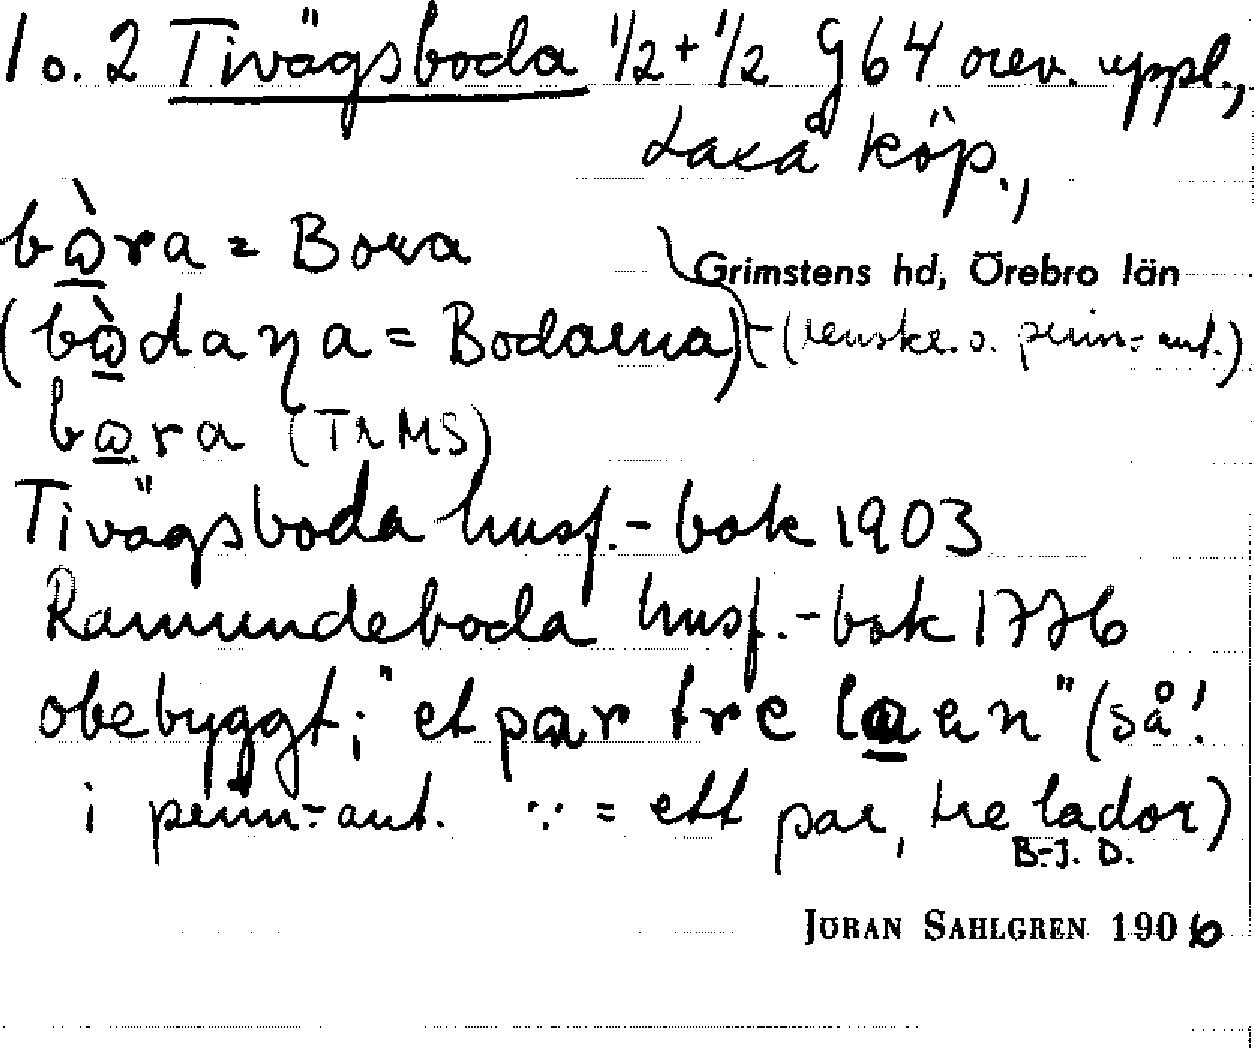 1 o. 2 Tivägsboda 1/2 + 1/2 G64 orev. uppl.,
Laxå köp.,
bɷ̀ra = Bora
Grimstens hd, Örebro län
(bɷ̀daṇa = Bodarna) (renskr. o. penn-ant.)
bɷra (TRMS)
Tivägsboda husf.-bok 1903
Ramundeboda husf.-bok 1776
obebyggt; "et par tre laen" (så!
i penn-ant. ∵ = ett par, tre lador)
B-J. D.
JÖRAN SAHLGREN 1906